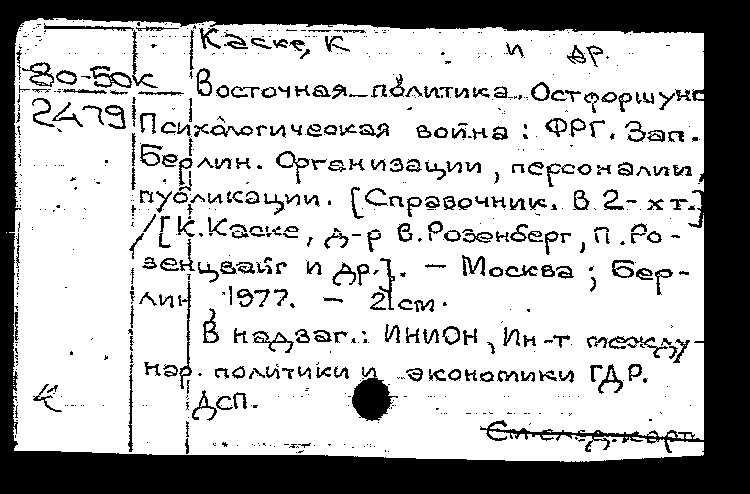 Каске, К и др.
80-50к
2479
Восточная политика. Остфоршунг
Психологическая война: ФРГ. Зап.
Берлин. Организации, персоналии,
публикации. [Справочник. В 2-х т.]
/[К.Каске, д-р В.Розенберг, П.Ро-
зенцвайг и др.]. — Москва; Бер-
лин, 1977. — 21см.
В надзаг.: ИНИОН, Ин-т между-
нар. политики и экономики ГДР.
ДСП.
См.след.карт.